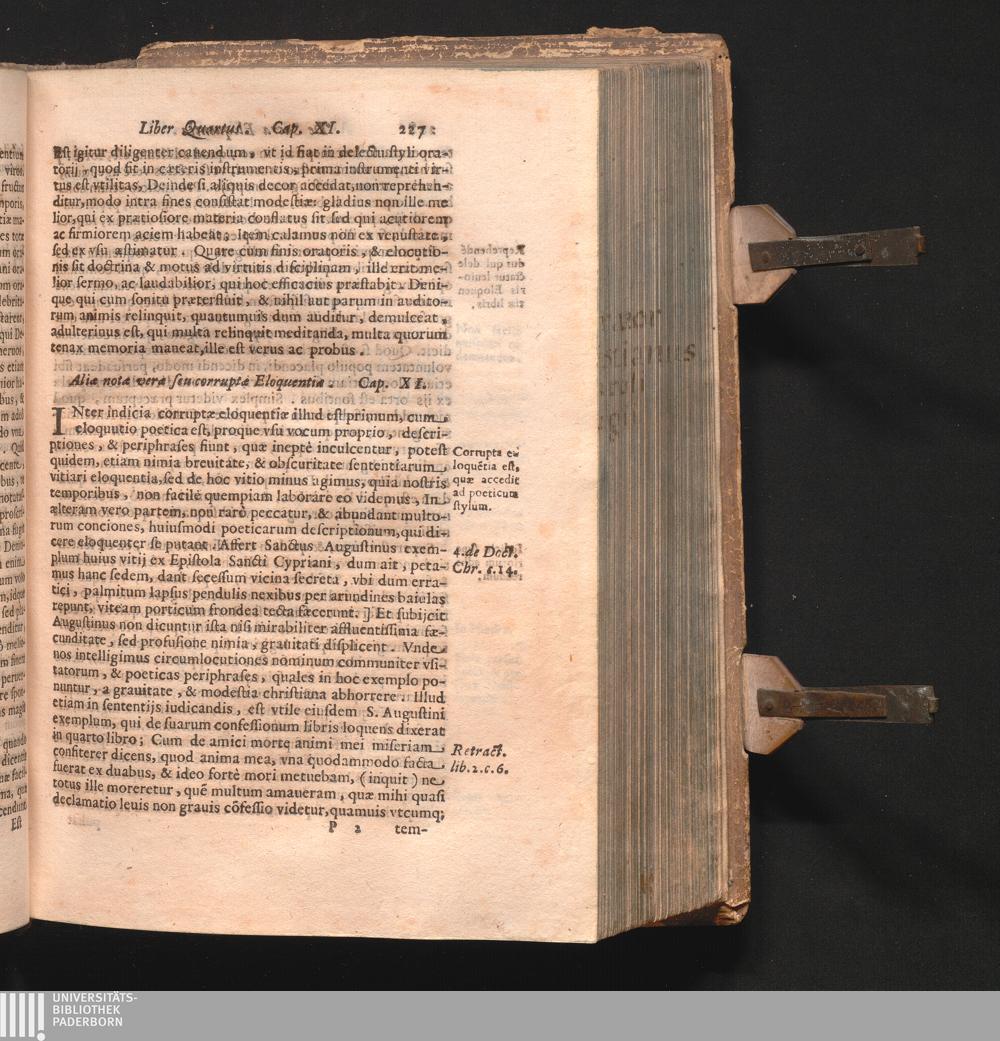 Liber Quartus. Cap. XI. 227
Est igitur diligenter cauendum, vt id fiat in delectu styli ora-
torij, quod fit in cæteris instrumentis, prima instrumenti vir-
tus est vtilitas, Deinde si aliquis decor accedat, non reprehen-
ditur, modo intra fines consistat modestiæ: gladius non ille me
lior, qui ex prætiosiore materia conflatus sit sed qui acutiorem
ac firmiorem aciem habeat; Item calamus non ex venustate,
sed ex vsu æstimatur. Quare cum finis oratoris, & elocutio-
nis sit doctrina & motus ad virtutis disciplinam, ille erit me-
lior sermo, ac laudabilior, qui hoc efficacius præstabit. Deni-
que qui cum sonitu præterfluit, & nihil aut parum in audito-
rum animis relinquit, quantumuis dum auditur, demulceat,
adulterinus est, qui multa relinquit meditanda, multa quorum
tenax memoria maneat, ille est verus ac probus.
Aliæ notæ veræ seu corruptæ Eloquentiæ. Cap. XI.
INter indicia corruptæ eloquentiæ illud est primum, cum
eloquutio poetica est, proque vsu vocum proprio, descri-
ptiones, & periphrases fiunt, quæ ineptè inculcentur, potest
quidem, etiam nimia breuitate, & obscuritate sententiarum
vitiari eloquentia, sed de hoc vitio minus agimus, quia nostris
temporibus, non facilè quempiam laborare eo videmus, In
alteram vero partem, non rarò peccatur, & abundant multo-
rum conciones, huiusmodi poeticarum descriptionum, qui di-
cere eloquenter se putant. Affert Sanctus Augustinus exem-
plum huius vitij ex Epistola Sancti Cypriani, dum ait, peta-
mus hanc sedem, dant secessum vicina secreta, vbi dum erra-
tici, palmitum lapsus pendulis nexibus per arundines baiulas
repunt, viteam porticum frondea tecta fæcerunt. Et subijcit
Augustinus non dicuntur ista nisi mirabiliter affluentissima fæ-
cunditate, sed profusione nimia, grauitati displicent. Vnde
nos intelligimus circumlocutiones nominum communiter vsi-
tatorum, & poeticas periphrases, quales in hoc exemplo po-
nuntur, a grauitate, & modestia christiana abhorrere. Illud
etiam in sententijs iudicandis, est vtile eiusdem S. Augustini
exemplum, qui de suarum confessionum libris loquens dixerat
in quarto libro; Cum de amici morte animi mei miseriam
confiterer dicens, quod anima mea, vna quodammodo facta
fuerat ex duabus, & ideo fortè mori metuebam, (inquit) ne
totus ille moreretur, quē multum amaueram, quæ mihi quasi
declamatio leuis non grauis cōfessio videtur, quamuis vtcumq;
P 2 tem-
Corrupta e-
loquētia est,
quæ accedit
ad poeticum
stylum.
4. de Doct.
Chr. c. 14.
Retract.
lib. 2. c. 6.
UNIVERSITÄTS-
BIBLIOTHEK
PADERBORN